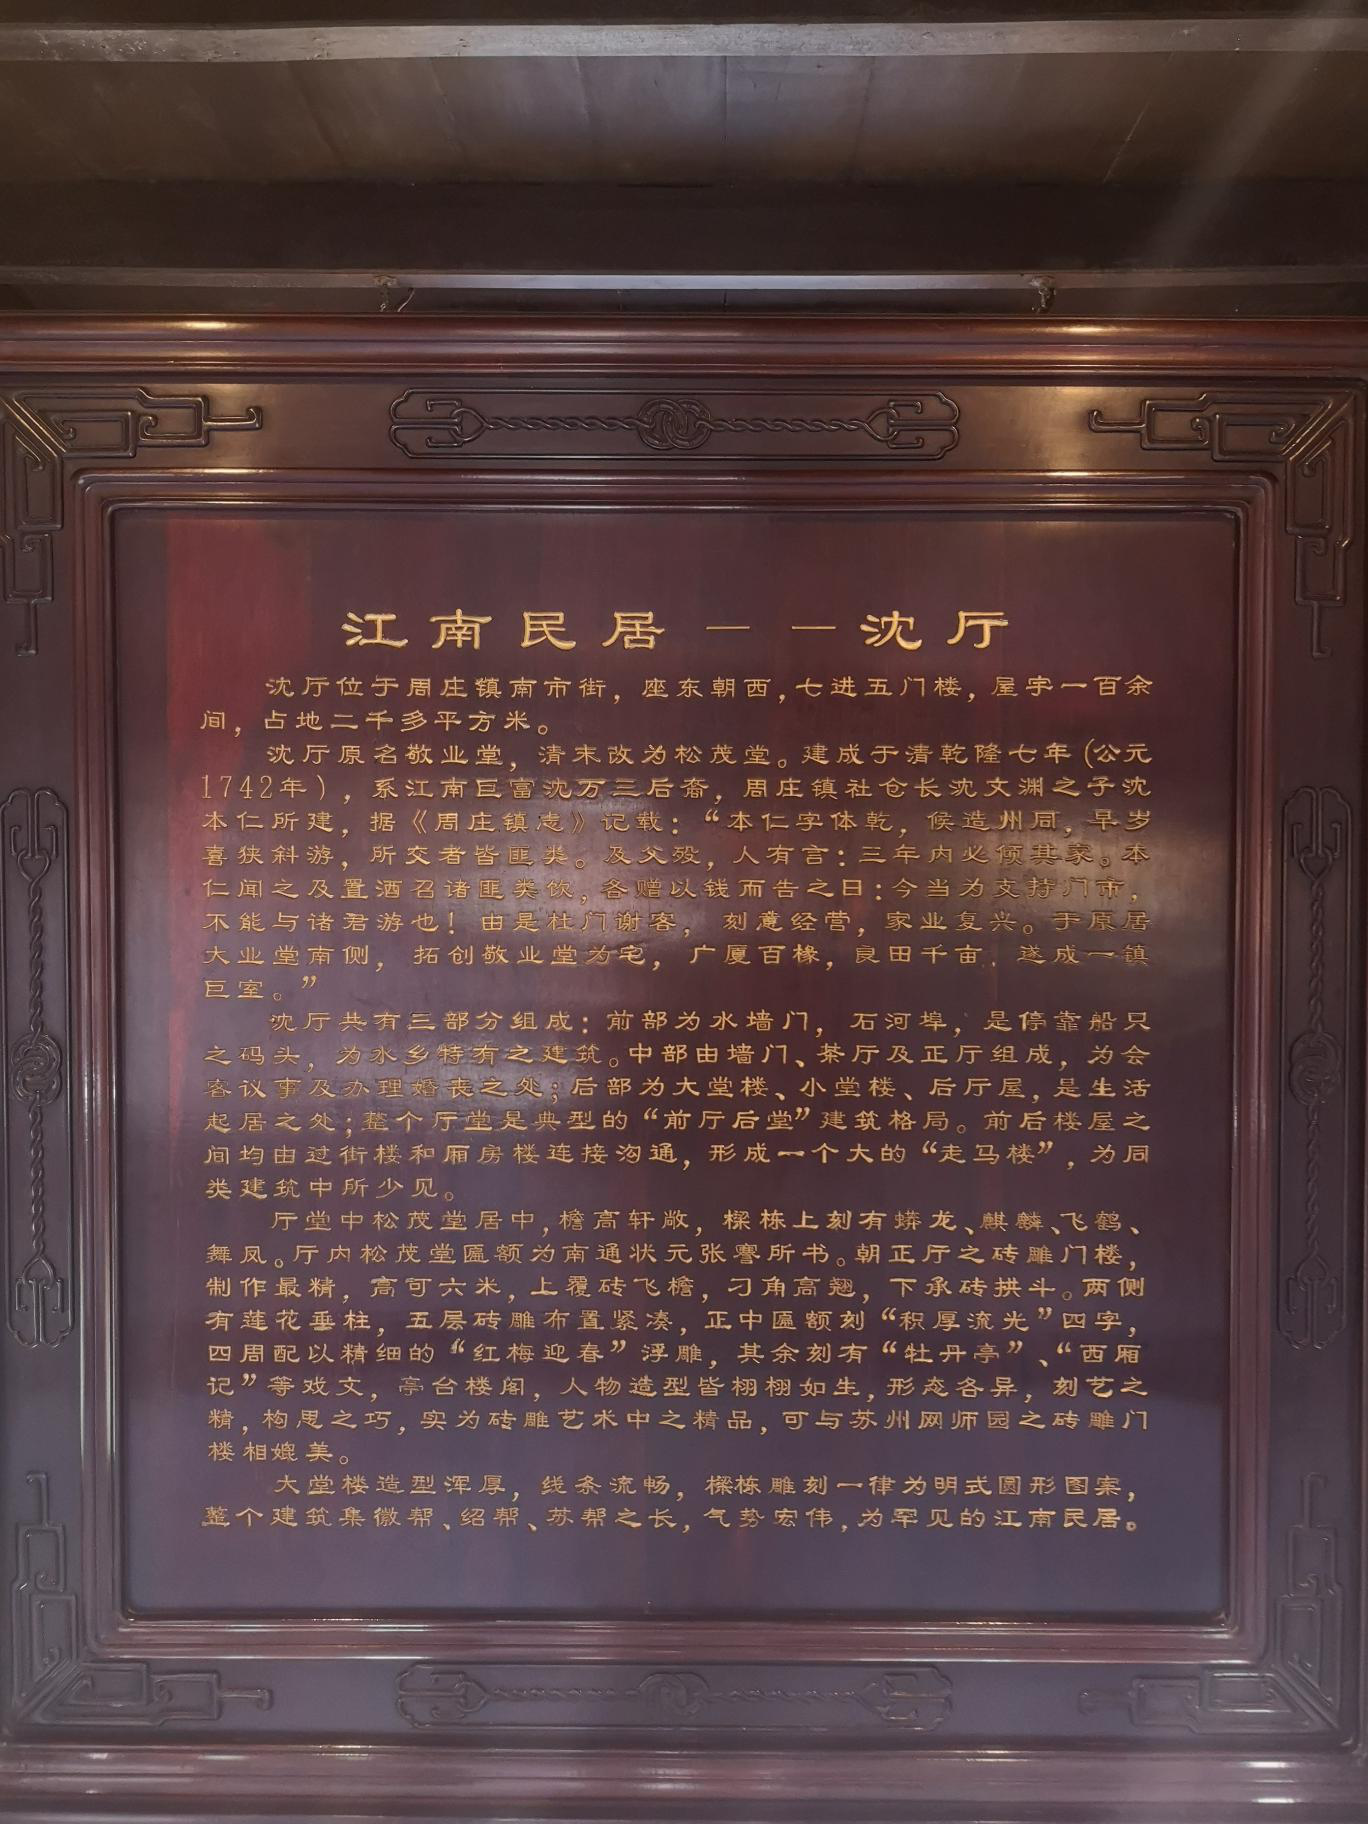 江南民居——沈厅
沈厅位于周庄镇南市街，座东朝西，七进五门楼，屋宇一百余
间，占地二千多平方米。
沈厅原名敬业堂，清末改为松茂堂。建成于清乾隆七年（公元
1742年），系江南巨富沈万三后裔，周庄镇社仓长沈文渊之子沈
本仁所建，据《周庄镇志》记载：“本仁字体乾，候造州同，早岁
喜狭斜游，所交者皆匪类。及父殁，人有言：三年内必倾其家。本
仁闻之及置酒召诸匪类饮，各赠以钱而告之曰：今当为支持门市，
不能与诸君游也！由是杜门谢客，刻意经营，家业复兴。于原居
大业堂南侧，拓创敬业堂为宅，广厦百椽，良田千亩．遂成一镇
巨室。”
沈厅共有三部分组成：前部为水墙门，石河埠，是停靠船只
之码头，为水乡特有之建筑。中部由墙门、茶厅及正厅组成，为会
客议事及办理婚丧之处；后部为大堂楼、小堂楼、后厅屋，是生活
起居之处；整个厅堂是典型的“前厅后堂”建筑格局。前后楼屋之
间均由过街楼和厢房楼连接沟通，形成一个大的“走马楼”，为同
类建筑中所少见。
厅堂中松茂堂居中，檐高轩敞，樑栋上刻有蟒龙、麒麟、飞鹤、
舞凤。厅内松茂堂匾额为南通状元张謇所书。朝正厅之砖雕门楼，
制作最精，高可六米，上覆砖飞檐，刁角高翘，下承砖拱斗。两侧
有莲花垂柱，五层砖雕布置紧凑，正中匾额刻“积厚流光”四字，
四周配以精细的“红梅迎春”浮雕，其余刻有“牡丹亭”、“西厢
记”等戏文，亭台楼阁，人物造型皆栩栩如生，形态各异，刻艺之
精，构思之巧，实为砖雕艺术中之精品，可与苏州网师园之砖雕门
楼相媲美。
大堂楼造型浑厚，线条流畅，樑栋雕刻一律为明式圆形图案，
整个建筑集徽帮、绍帮、苏帮之长，气势宏伟，为罕见的江南民居。